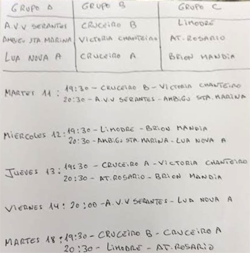 GRUPO A GRUPO B GRUPO C
A.V.V SERANTES CRUCEIRO B LIMODRE
AMBIEU STA MARINA VICTORIA CHANTEIRO AT. ROSARIO
LUA NOVA A CRUCEIRO A BRION MANDIA
MARTES 11: 19:30 - CRUCEIRO B - VICTORIA CHANTEIRO
20:30 - A.V.V SERANTES - AMBIEU STA MARINA
MIERCOLES 12: 19:30 - LIMODRE - BRION MANDIA
20:30 - AMBIEU STA MARINA - LUA NOVA A
JUEVES 13: 19:30 - CRUCEIRO A - VICTORIA CHANTEIRO
20:30 - AT. ROSARIO - BRION MANDIA
VIERNES 14: 20:00 - A.V.V SERANTES - LUA NOVA A
MARTES 18: 19:30 - CRUCEIRO B - CRUCEIRO A
20:30 - LIMODRE - AT. ROSARIO